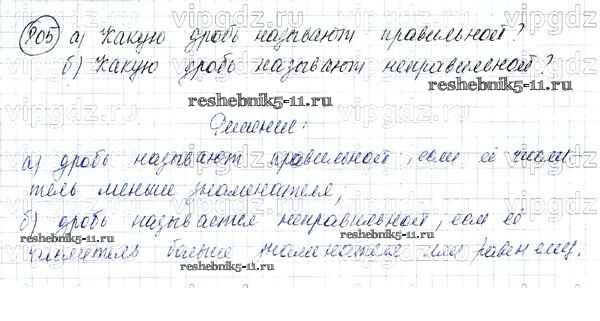 805 а) Какую дробь называют правильной?
б) Какую дробь называют неправильной?
reshebnik5-11.ru reshebnik5-11.ru
Решение:
а) дробь называют правильной, если её числи-
тель меньше знаменателя;
б) дробь называется неправильной, если её
числитель больше знаменателя или равен ему.
reshebnik5-11.ru reshebnik5-11.ru reshebnik5-11.ru
vipgdz.ru